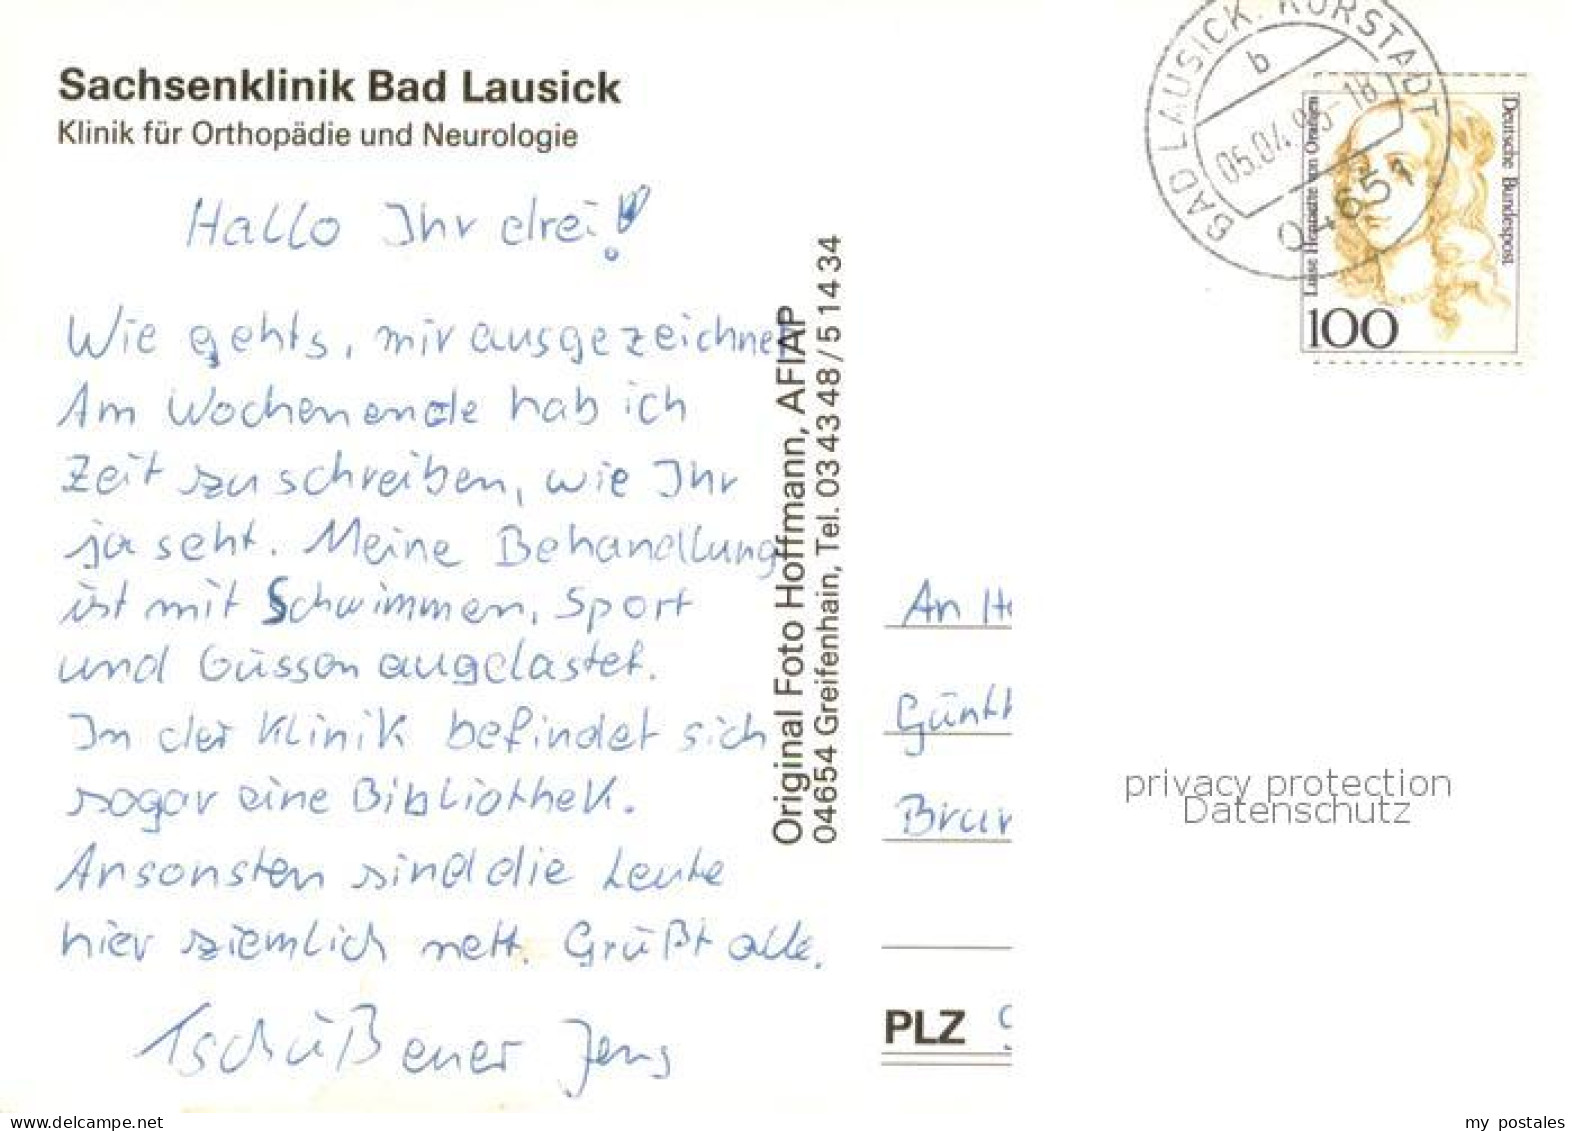 Sachsenklinik Bad Lausick
Klinik für Orthopädie und Neurologie
Hallo Ihr drei!
Wie gehts, mir ausgezeichnet
Am Wochenende hab ich
Zeit zu schreiben, wie Ihr
ja seht. Meine Behandlung
ist mit Schwimmen, Sport
und Güssen augelastet.
In der Klinik befindet sich
sogar eine Bibliothek.
Ansonsten sind die Leute
hier ziemlich nett. Grüßt alle.
Tschüß euer Jens
Original Foto Hoffmann, AFIAP
04654 Greifenhain, Tel. 03 43 48 / 5 14 34
BAD LAUSICK, KURSTADT
b
05.04.95-18
O-4651
Deutsche Bundespost
Luise Henriette von Oranien
100
An He
Günth
Braun
PLZ
privacy protection
Datenschutz
delcampe.net
my postales